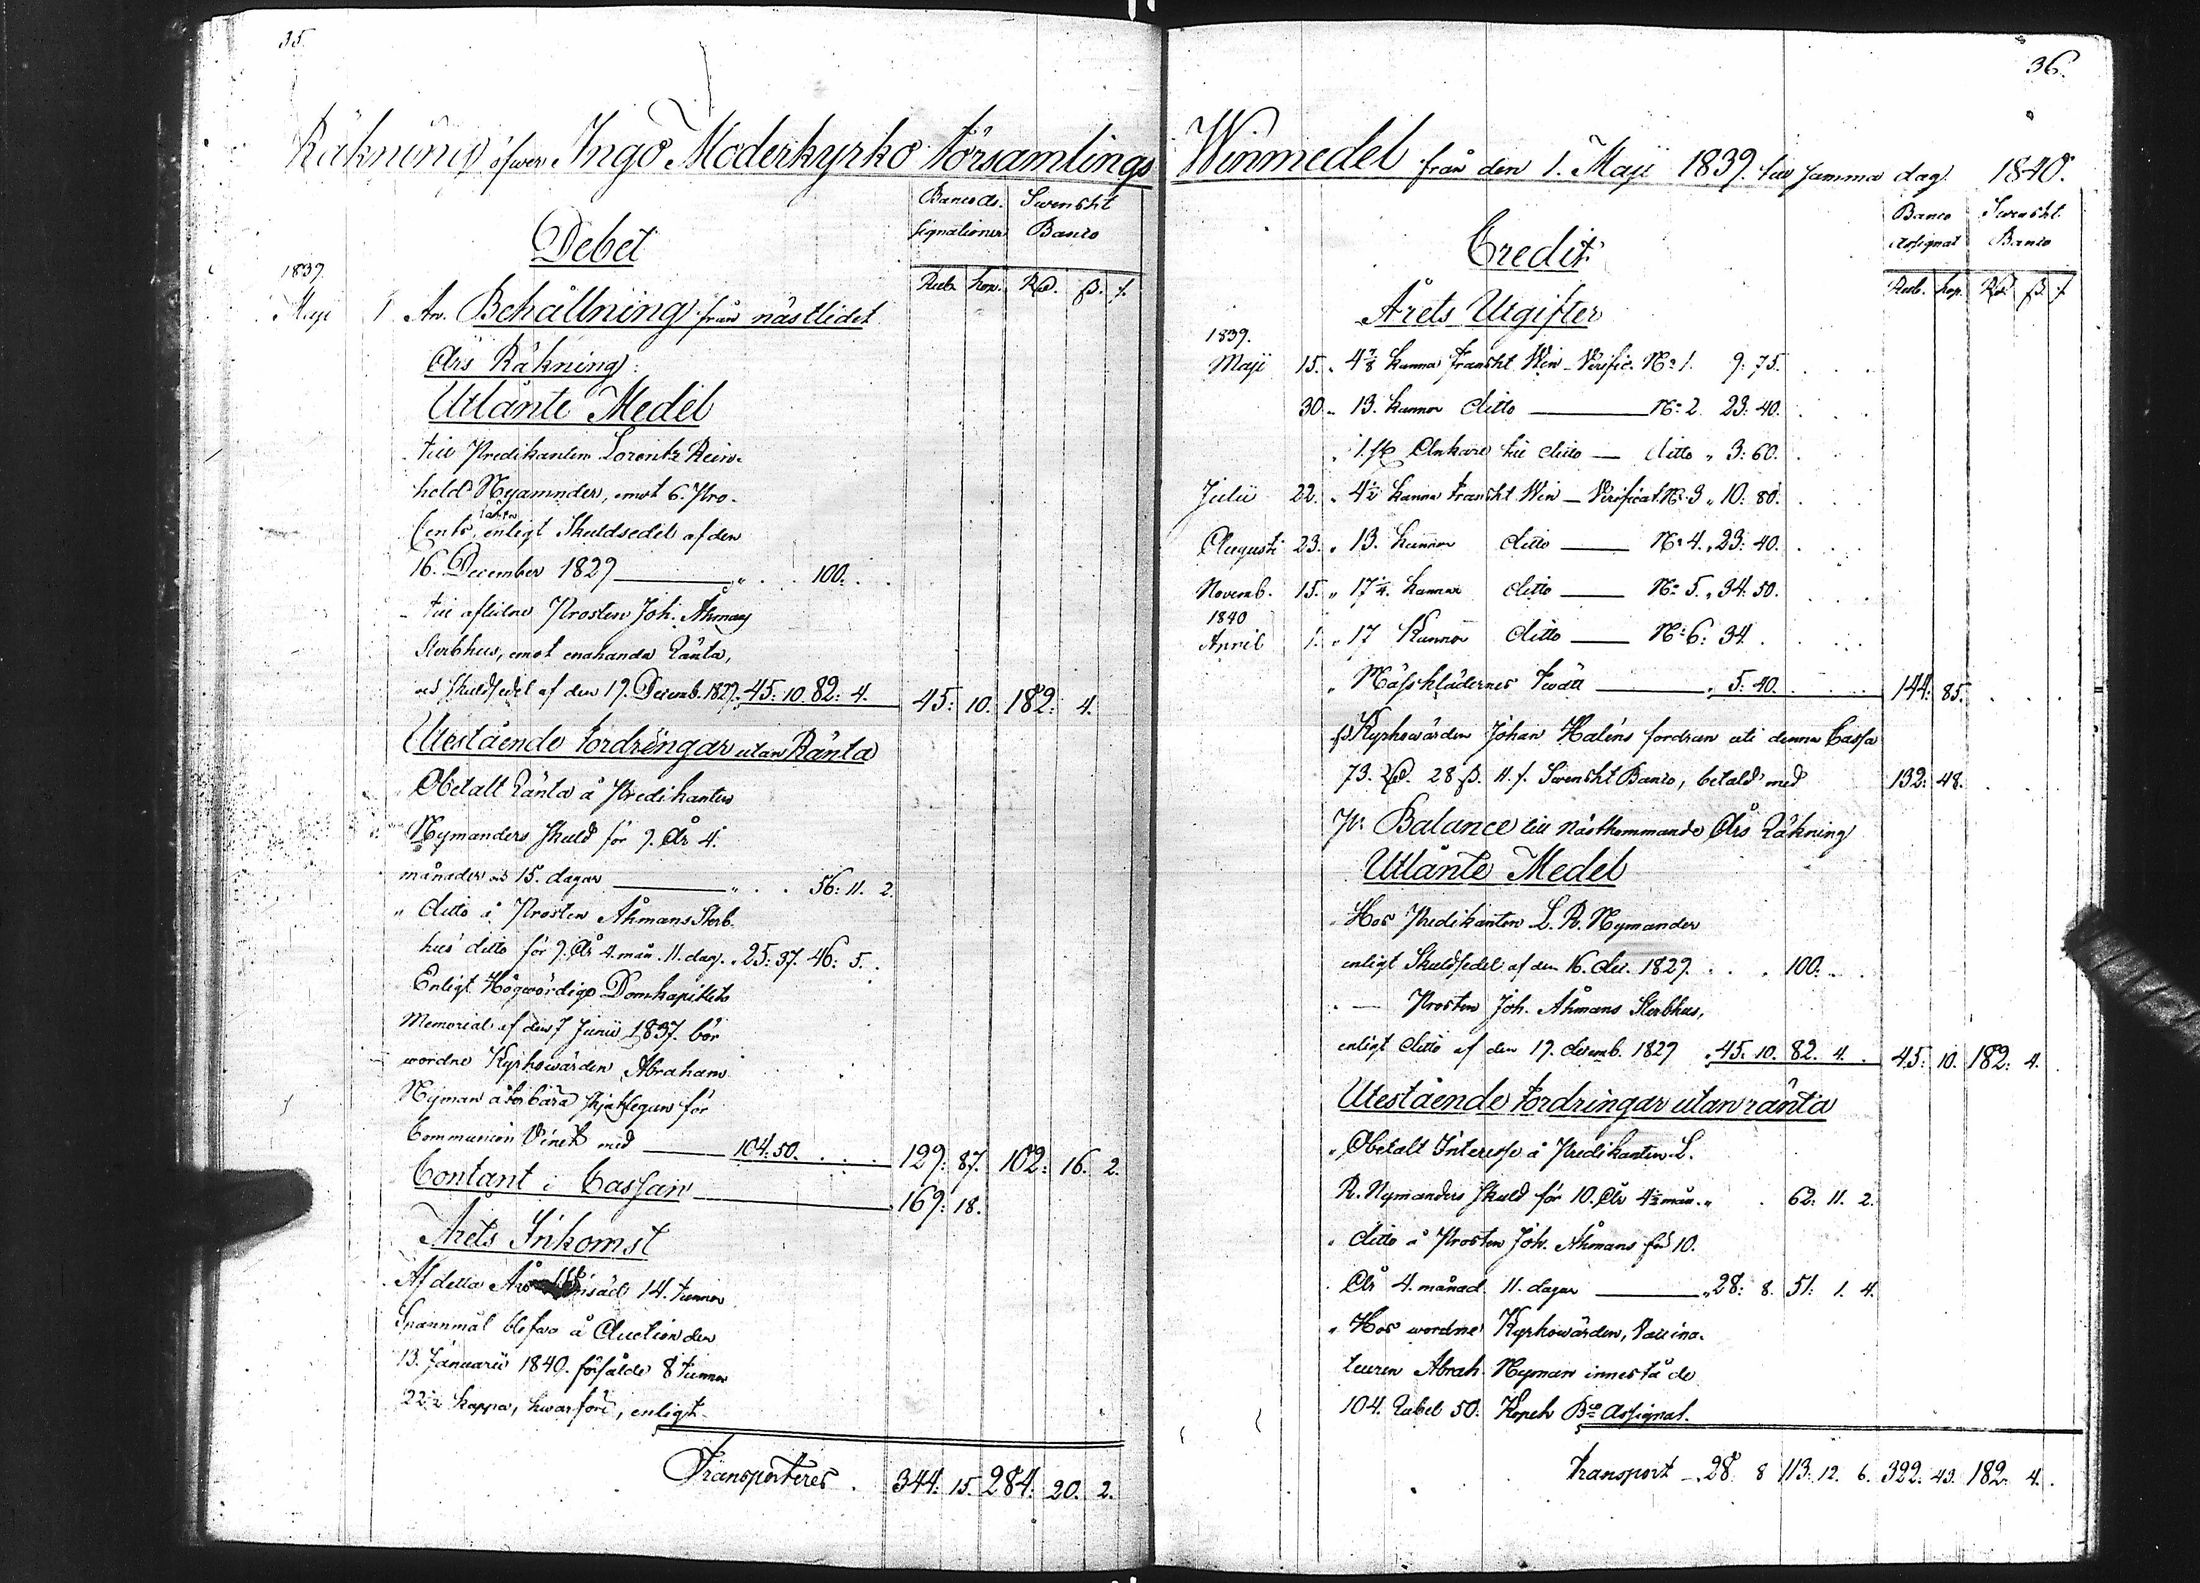 35.
Räkning öfwer Ingo Moderkyrko Församlings
Banco As- Swenskt
signationer Banco
Debet
Rub. kop. Rd. ß. f.
1839.
Maji 1 An Behållning från nästlidet
Års Räkning:
Utlånte Medel
till Predikanten Lorentz Rein-
hold Nyamnder, emot 6. Pro-
Cents enligt Skuldsedel af den
16. December 1829 100.
till aflidne Prosten Joh. Åhmans
Sterbhus, emot enahanda Ränta,
Skuldsedel af den 19. Decemb. 1829. 45: 10. 82: 4. 45: 10. 182: 4.
Utestående Fordringar utan Ränta
Obetalt Ränta å Predikanten
Nymanders skuld för 9. År 4.
månader och 15. dagar 56: 11. 2.
" ditto å Prosten Åhmans Sterb-
hus ditto för 9. År 4. mån. 11. dag. 25: 37. 46: 5.
Enligt Högwördige Domkapitlets
Memorial af den 7 Junii 1837. bör
wordne Kyrkowärden Abraham
Nyman återbära
Communion Vinet med 104. 50. 129: 87. 102: 16. 2.
Contant i Cassan 169: 18.
Årets Inkomst
Af detta Års 14. tunnor
Spannmål blefwo å Auction den
13. Januarii 1840. försålde 8 tunnor
22½ kappa, hwarföre, enligt
Transporteres. 344: 15. 284: 20. 2.
36.
Winmedel från den 1. Maji 1839. till samma dag 1840.
Banco Swenskt
Assignat Banco
Credit
Rub. kop. Rd ß. f
Årets Utgifter
1839.
Maji 15. " 4 7/8 kanna Franskt Win - Verific. No 1. 9: 75.
30. " 13. kannor ditto No 2. 23: 40.
" 1. st. Ankare till ditto ditto " 3: 60.
Julii 22. " 4½ kanna Franskt Win - Verificat. No 3 " 10: 80.
Augusti 23. " 13. kannor ditto No 4. " 23: 40.
Novemb. 15. " 17¼. kannor ditto No 5. " 34: 50.
1840
April 1. " 17 Kannor ditto No 6: 34.
" Mässklädernes twätt " 5: 40. 144: 85.
Kyrkowärden Johan Haléns fordran uti denna Cassa
73. Rd. 28 ß. 11. f. Swenskt Banco, betald med 132: 48.
Pr Balance till nästkommande Års Räkning
Utlånte Medel
Hos Predikanten L. R. Nymander
enligt Skuldsedel af den 16. dec. 1829. 100.
" — Prosten Joh. Åhmans Sterbhus,
enligt ditto af den 19. decemb. 1829 " 45. 10. 82. 4. 45: 10. 182: 4.
Utestående Fordringar utan ränta
" Obetalt Interesse å Predikanten L.
R. Nymanders skuld för 10. År 4½ mån. " 62: 11. 2.
" ditto å Prosten Joh. Åhmans för 10.
År 4. månad. 11. dagar " 28: 8. 51: 1. 4.
" Hos wordne Kyrkowärden,
Abrah. Nyman innestå de
104. Rubel 50. Kopek Bco Assignat.
Transport 28. 8 113. 12. 6. 322. 43. 182. 4.